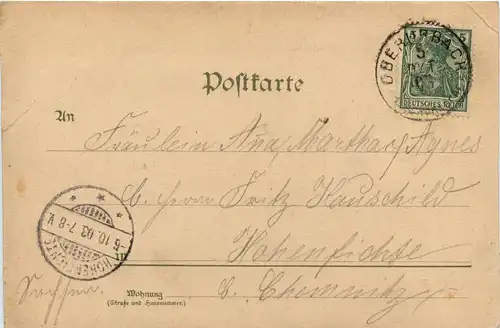 OBERURBACH
5
DEUTSCHES REICH
Postkarte
An
Fräulein Ana, Martha, Agnes
b. Herrn Fritz Hauschild
HOHENFICHTE
6.10.03.7-8 V.
Hohenfichte
Sachsen.
b. Chemnitz
Wohnung
(Straße und Hausnummer)